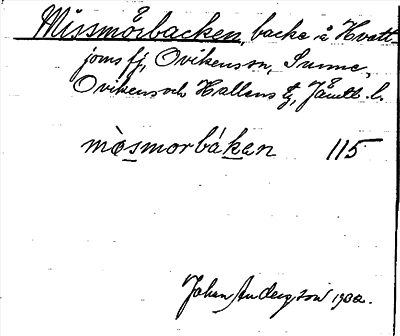 Missmörbacken, backe å Hvatt-
joms fj, Ovikens sn, Sunne,
Ovikens och Hallens tg, Jämtl. l.
mòsmorbákan 115
Johan Anderzson 1900.